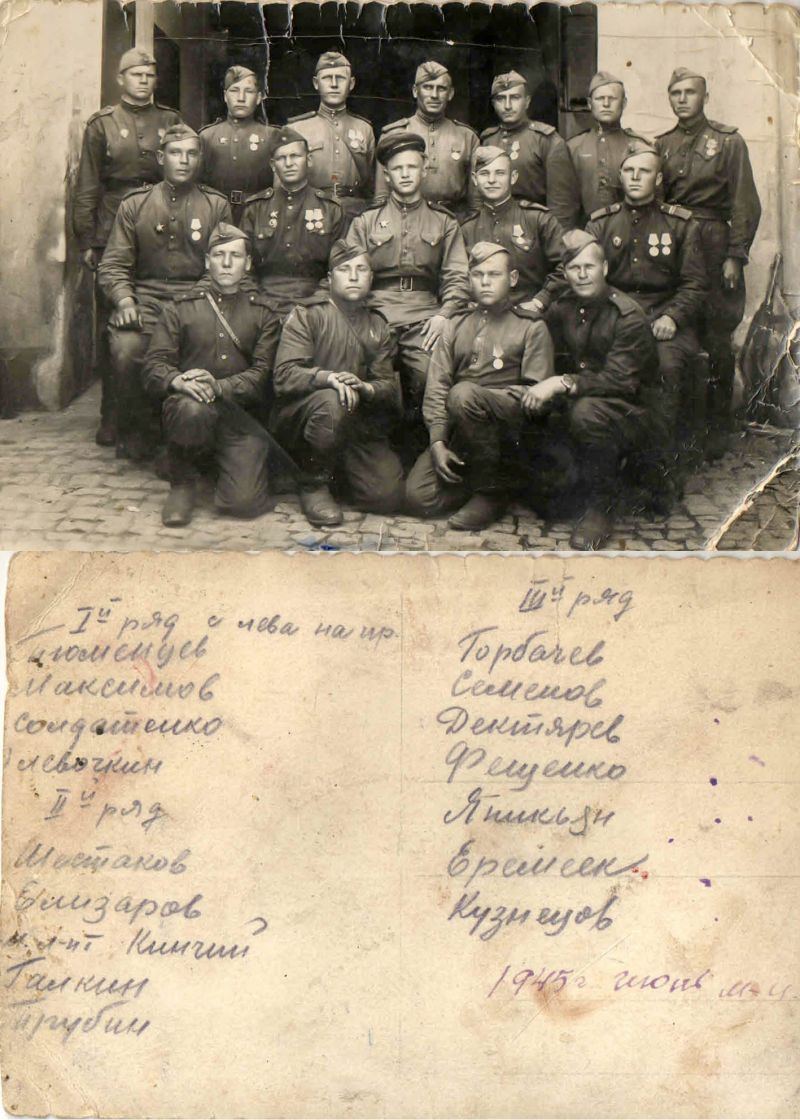 Iй ряд с лева на пр.
Тюменцев
Максимов
Солдатенко
Олевочкин
IIй ряд
Шестаков
Елизаров
м. л-нт Кинчий
Галкин
Трубин
IIIй ряд
Горбачев
Семенов
Дектярев
Фещенко
Япикьян
Еремеек
Кузнецов
1945 г июнь м-ц.